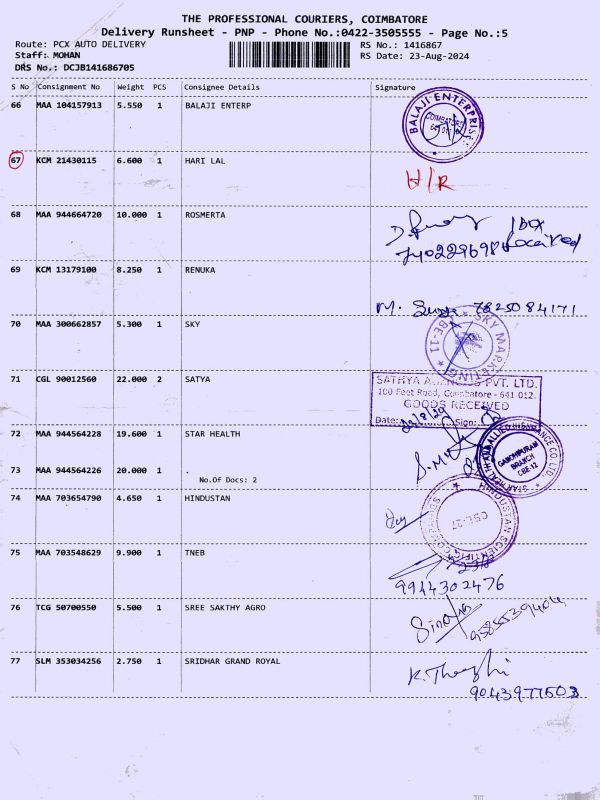 THE PROFESSIONAL COURIERS, COIMBATORE
Delivery Runsheet - PNP - Phone No.:0422-3505555 - Page No.:5
Route: PCX AUTO DELIVERY RS No.: 1416867
Staff: MOHAN RS Date: 23-Aug-2024
DRS No.: DCJB141686705
S No Consignment No Weight PCS Consignee Details Signature
66 MAA 104157913 5.550 1 BALAJI ENTERP
BALAJI ENTERPRISE
COIMBATORE
67 KCM 21430115 6.600 1 HARI LAL
H/R
68 MAA 944664720 10.000 1 ROSMERTA
1 BOX
Received
69 KCM 13179100 8.250 1 RENUKA
M. 7825084171
70 MAA 300662857 5.300 1 SKY
SKY MARKETING
CBE-11
71 CGL 90012560 22.000 2 SATYA
SATHYA AGENCIES PVT. LTD.
100 Feet Road, Coimbatore - 641 012.
GOODS RECEIVED
Date: Sign:
72 MAA 944564228 19.600 1 STAR HEALTH
STAR HEALTH AND ALLIED INSURANCE CO. LTD.
GANDHIPURAM
BRANCH
CBE-12
73 MAA 944564226 20.000 1 .
No.Of Docs: 2
74 MAA 703654790 4.650 1 HINDUSTAN
HINDUSTAN SCIENTIFIC
CBE-27
75 MAA 703548629 9.900 1 TNEB
9944302476
76 TCG 50700550 5.500 1 SREE SAKTHY AGRO
77 SLM 353034256 2.750 1 SRIDHAR GRAND ROYAL
9043977503